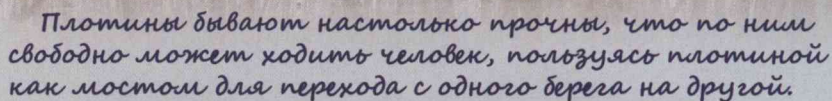 Плотины бывают настолько прочны, что по ним
свободно может ходить человек, пользуясь плотиной
как мостом для перехода с одного берега на другой.